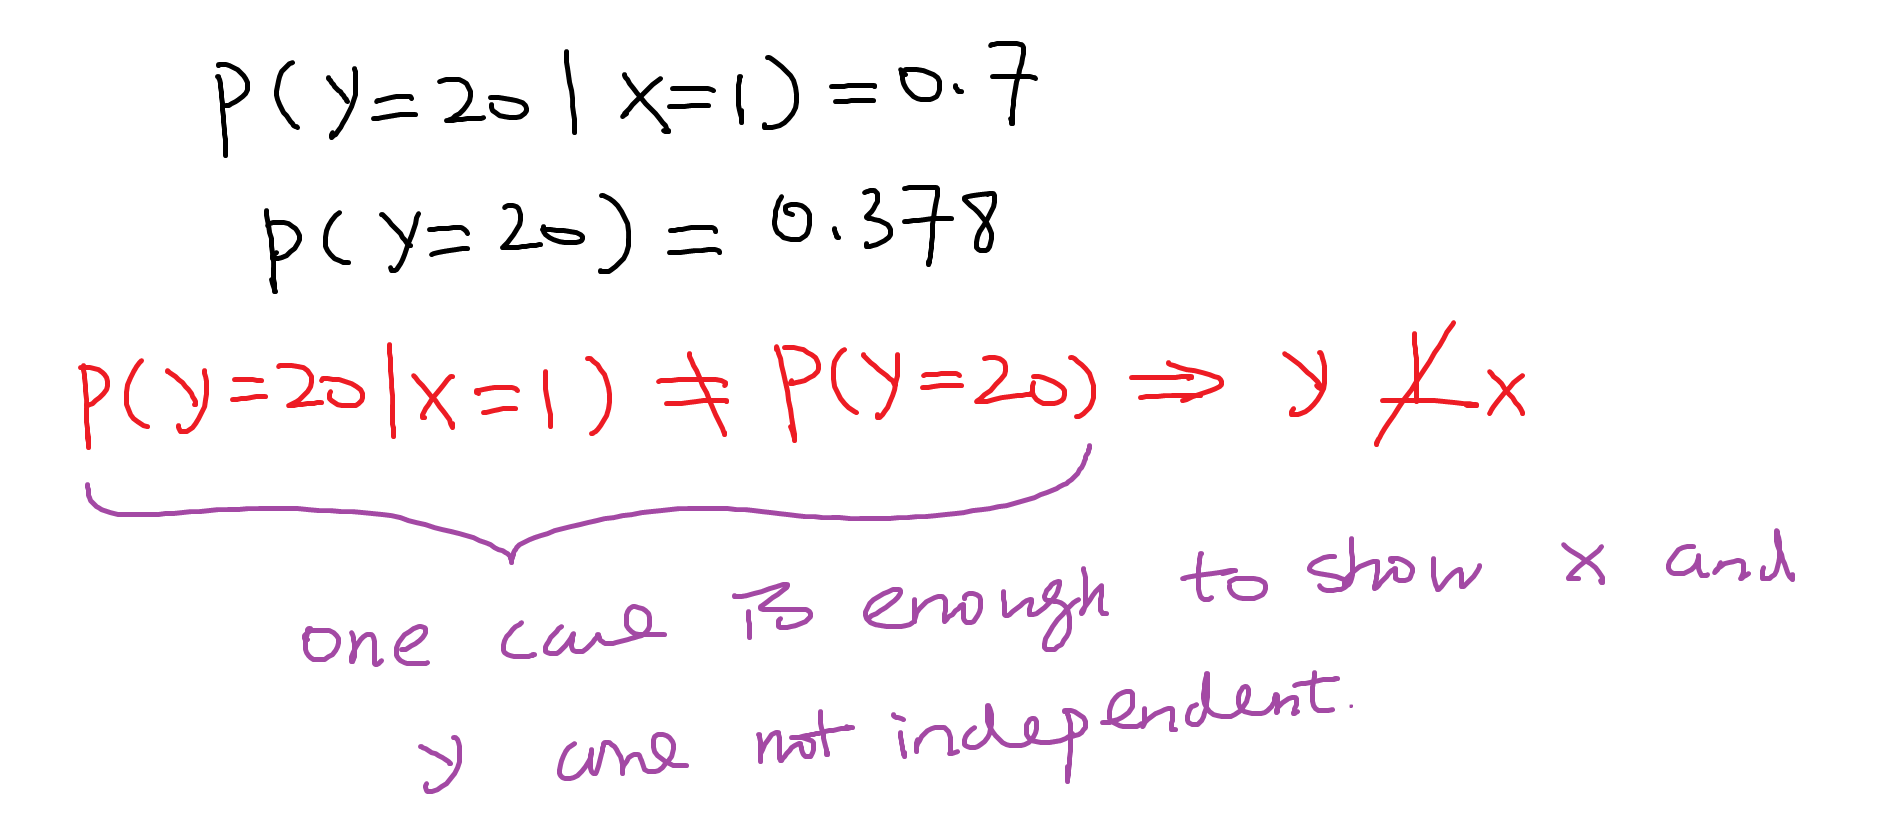 P(y=20 | x=1) = 0.7
P(y=20) = 0.378
P(y=20 | x=1) ≠ P(y=20) ⇒ y ⊥̸ x
one case is enough to show x and
y are not independent.